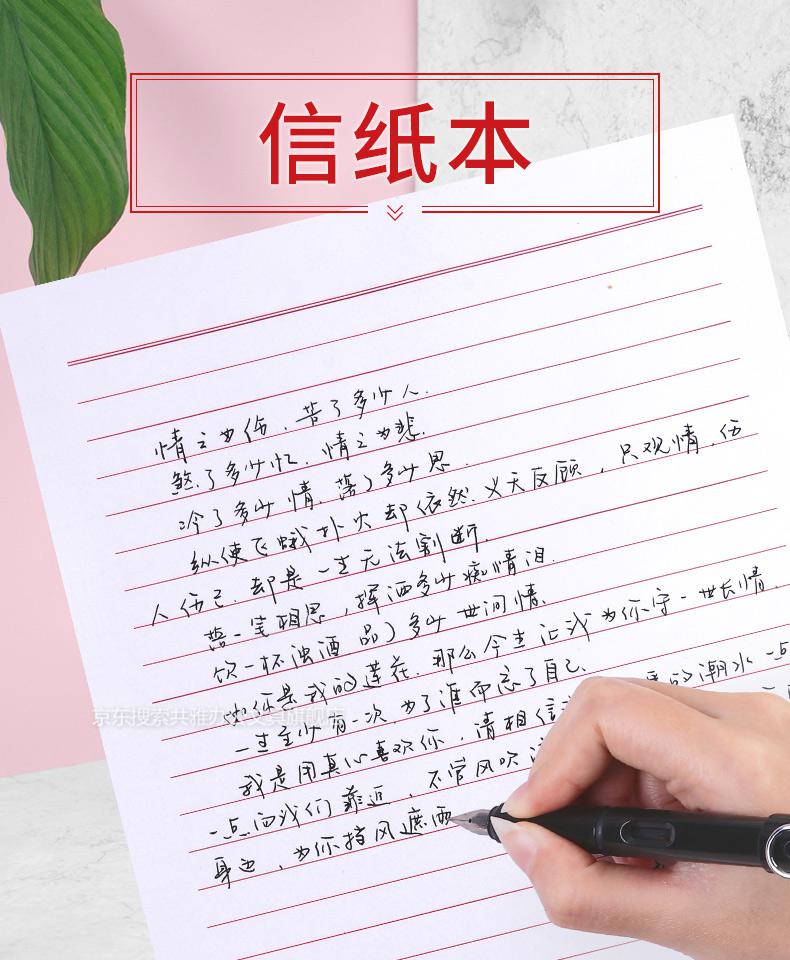 信纸本
情之为伤，苦了多少人.
煞了多少忆. 情之为悲.
冷了多少情. 落了多少思.
纵使飞蛾扑火却依然. 义无反顾，只观情. 伤
人伤己. 却是一生无法割断.
落一笔相思，挥洒多少痴情泪.
饮一杯浊酒 品了多少世间情.
你是我的莲花. 那么今生让我为你守一世长情.
一生至少有一次. 为了谁而忘了自己.
的潮水一点
我是用真心喜欢你，请相信
一点向我们靠近，不管风吹
身边，为你挡风遮雨
京东搜索共雅办公文具旗舰店